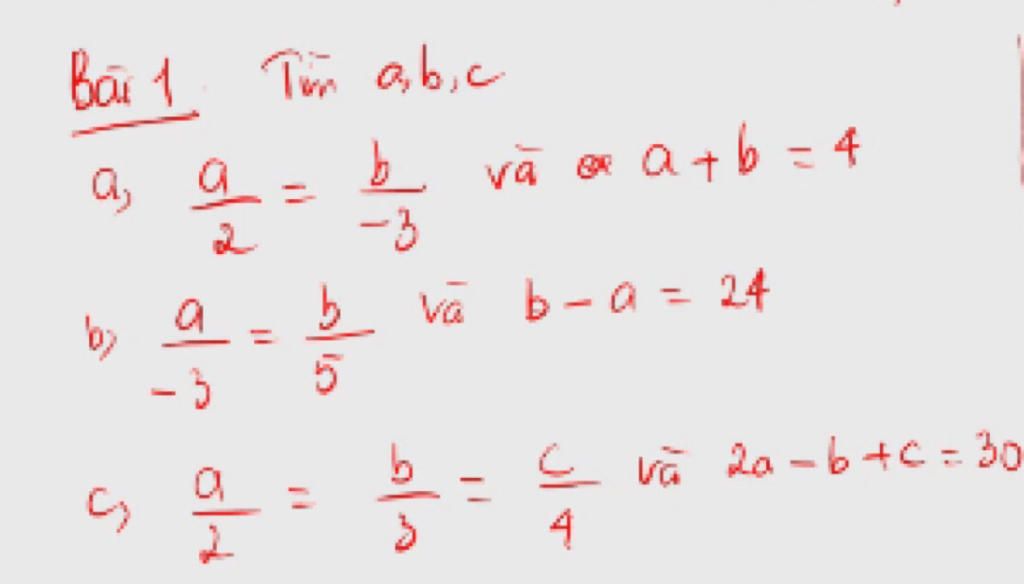 Bài 1. Tìm a, b, c
a, a/2 = b/-3 và a + b = 4
b) a/-3 = b/5 và b - a = 24
c, a/2 = b/3 = c/4 và 2a - b + c = 30